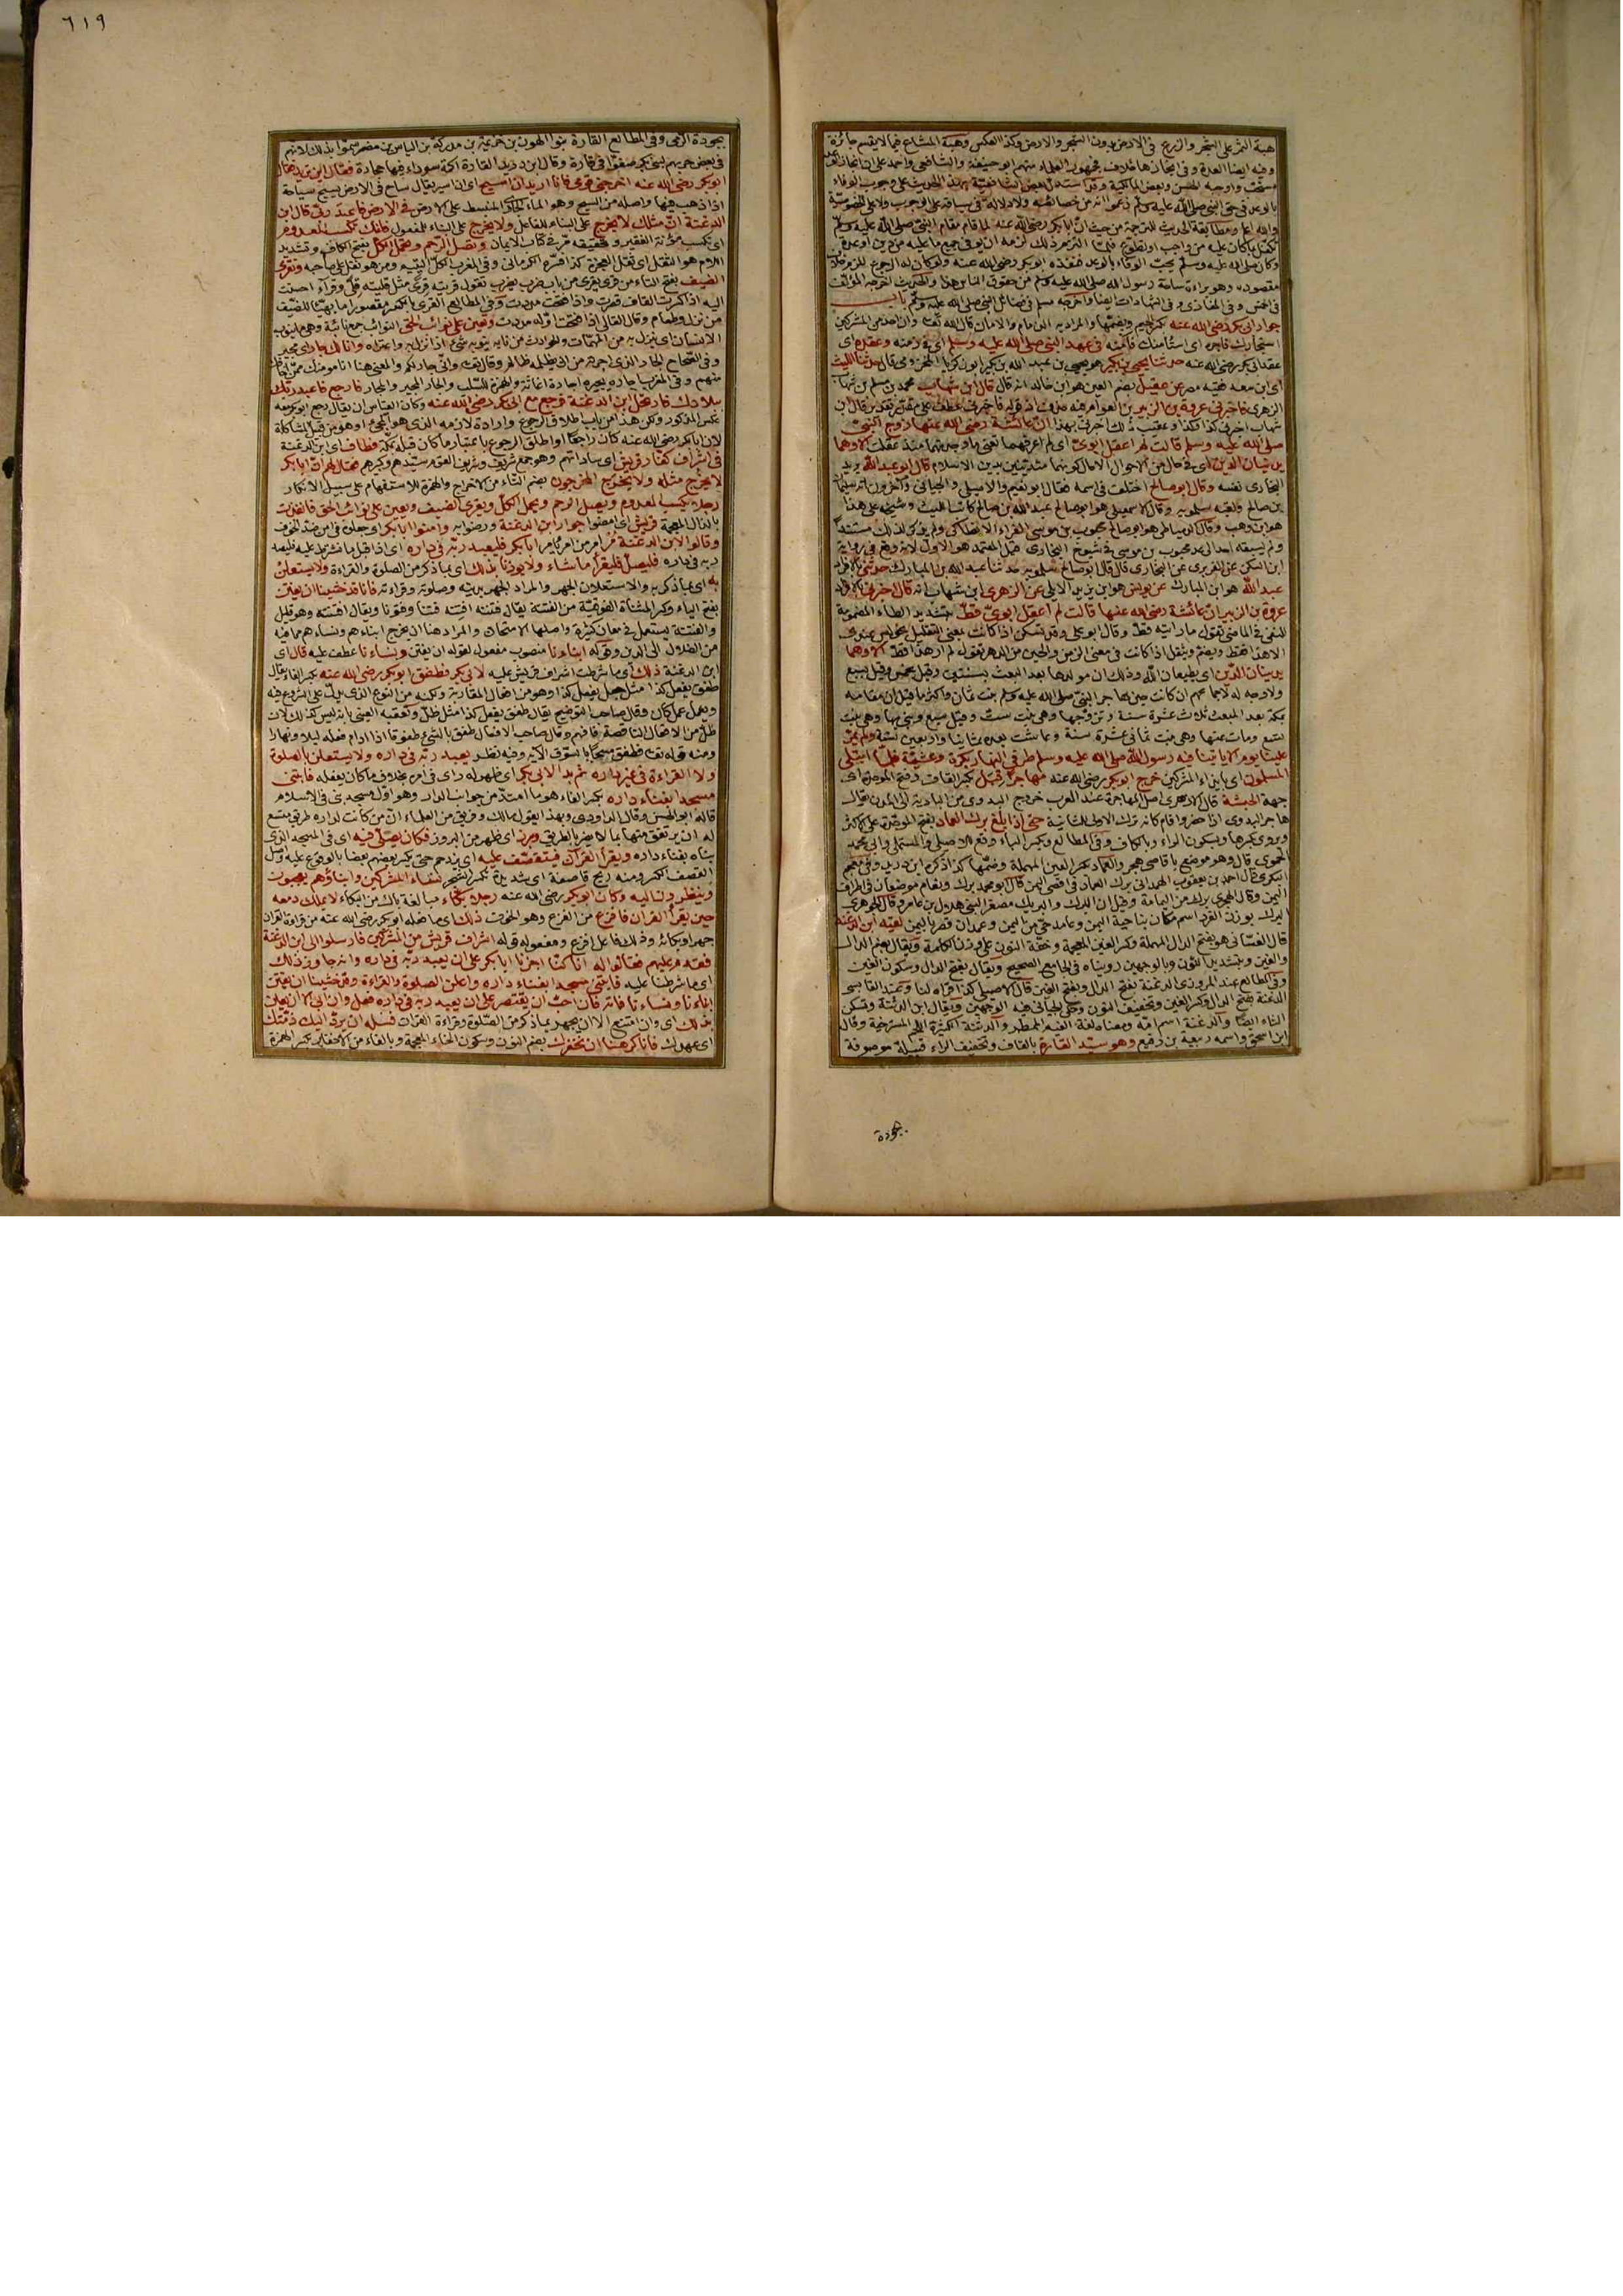 هبة الثمر على الشجر والزرع في الارض بدون الشجر والارض وكذا العكس وهبة المشاع فيما لا يقسم جائزة
وفيه ايضا العدة وفي انجازها خلاف فجمهور العلماء منهم ابو حنيفة والشافعي واحمد على ان انجاز الوعد
مستحب واوجبه الحسن وبعض المالكية وقد استدل بعض الشافعية بهذا الحديث على وجوب الوفاء
بالوعد في حق النبي صلى الله عليه وسلم زعموا انه من خصائصه ولا دلالة في سياقه على الوجوب ولا على الخصوصية
والله اعلم ومطابقة الحديث للترجمة من حيث ان ابا بكر رضي الله عنه لما قام مقام النبي صلى الله عليه وسلم
تكفل بما كان عليه من واجب او تطوع فلما التزم ذلك لزمه ان يوفي جميع ما عليه من دين او عدة
وكان صلى الله عليه وسلم يحب الوفاء بالوعد فنفذه ابو بكر رضي الله عنه
في الخمس وفي المغازي وفي الشهادات ايضا واخرجه مسلم في فضائل النبي صلى الله عليه وسلم باب
جوار ابي بكر رضي الله عنه بكسر الجيم وبضمها والمراد به الذمام والامان قال الله تعالى وان احد من المشركين
استجارك فاجره اي استأمنك فآمنه في عهد النبي صلى الله عليه وسلم اي في زمنه وعقده اي
عقد ابي بكر رضي الله عنه حدثنا يحيى بن بكير هو يحيى بن عبد الله بن بكير ابو زكريا المخزومي قال حدثنا الليث
اي ابن سعد فقيه مصر عن عقيل بضم العين هو ابن خالد انه قال قال ابن شهاب محمد بن مسلم بن شهاب
الزهري فاخبرني عروة بن الزبير بن العوام
شهاب اخبرني كذا وكذا وعقيب ذلك اخبرني بهذا ان عائشة رضي الله عنها زوج النبي
صلى الله عليه وسلم قالت لم اعقل ابوي اي لم اعرفهما يعني ما وجدتهما منذ عقلت الا وهما
يدينان الدين اي في حال من الاحوال الا حال كونهما متدينين بدين الاسلام قال ابو عبد الله يريد
البخاري نفسه وقال ابو صالح اختلف في اسمه فقال ابو نعيم والاصيلي والجياني وآخرون انه سليمان
بن صالح ولقبه سلمويه وقال الاسمعيلي هو ابو صالح عبد الله بن صالح كاتب الليث وشيخه على هذا
هو ابن وهب وقال الدمياطي هو ابو صالح محبوب بن موسى الفراء الانطاكي ولم يذكر لذلك مستند
ولم يسبقه احد الى عد محبوب بن موسى في شيوخ البخاري فهل المعتمد هو الاول لانه وقع في رواية
ابن السكن عن الفربري عن البخاري قال قال ابو صالح سلمويه حدثنا عبد الله بن المبارك حدثني بالافراد
عبد الله هو ابن المبارك عن يونس هو ابن يزيد الايلي عن الزهري ابن شهاب انه قال اخبرني بالافراد
عروة بن الزبير ان عائشة رضي الله عنها قالت لم اعقل ابوي قط بتشديد الطاء المضمومة
للنفي في الماضي تقول ما رأيته قط وقال ابو علي وقد تسكن اذا كانت بمعنى التقليل
الا هذا فقط ويضم ويثقل اذا كانت في معنى الزمن والحين من الدهر تقول لم ار هذا قط الا وهما
يدينان الدين اي يطيعان الله وذلك ان مولدها بعد البعث بسنتين وقيل بخمس وقيل بسبع
ولا وجه له لاجماعهم ان كانت حين هاجر النبي صلى الله عليه وسلم بنت ثمان واكثر ما قيل ان مقامه
بمكة بعد المبعث ثلاث عشرة سنة وتزوجها وهي بنت ست وقيل سبع وبنى بها وهي بنت
تسع ومات عنها وهي بنت ثماني عشرة سنة وعاشت بعده ثمانيا واربعين سنة ولم يمر
علينا يوم الا يأتينا فيه رسول الله صلى الله عليه وسلم طرفي النهار بكرة وعشية فلما ابتلي
المسلمون اي بايذاء المشركين خرج ابو بكر رضي الله عنه مهاجرا قبل بكسر القاف وفتح الموحدة اي
جهة الحبشة قال الازهري اصل المهاجرة عند العرب خروج البدوي من البادية الى المدن يقال
هاجر البدوي اذا حضر واقام كانه ترك الاولى للثانية حتى اذا بلغ برك الغماد بفتح الموحدة على الاكثر
ويروى بكسرها وبسكون الراء وبالكاف وفي المطالع وبكسر الباء وقع للاصيلي والمستملي وابي محمد
الحموي قال وهو موضع باقاصي هجر والغماد بكسر الغين المعجمة وضمها كذا ذكره ابن دريد وفي معجم
البكري قال احمد بن يعقوب الهمداني برك الغماد في اقصى اليمن قال ابو محمد برك ونعام موضعان في اطراف
اليمن وقال الهجري برك من اليمامة وقيل ان البرك والبريك مصغرا لبني هلال بن عامر وقال الجوهري
البرك بوزن القرد اسم مكان بناحية اليمن وغامد حي من اليمن وغمدان قصر باليمن لقيه ابن الدغنة
قال الغساني هو بفتح الدال المهملة وكسر الغين المعجمة وخفة النون على وزن الكلمة ويقال بضم الدال
والغين وبتشديد النون وبالوجهين رويناه في الجامع الصحيح ويقال بفتح الدال وسكون الغين
وفي المطالع عند المروزي الدغنة بفتح الدال وبفتح الغين قال الاصيلي كذا قرأه لنا وعند القابسي
الدغنة بفتح الدال وكسر الغين وتخفيف النون وحكى الجياني فيه الوجهين ويقال ابن الدثنة وتسكن
الثاء ايضا والدغنة اسم امه ومعناه لغة الغيم الممطر والدثنة الكثيرة اللحم المسترخية وقال
ابن اسحق واسمه ربيعة بن رفيع وهو سيد القارة بالقاف وتخفيف الراء قبيلة موصوفة
بجودة
٦١٩
بجودة الرمي وفي المطالع القارة بنو الهون بن خزيمة بن مدركة بن الياس بن مضر سموا بذلك لانهم
في بعض حربهم لبني بكر صفوا في قارة وقال ابن دريد القارة اكمة سوداء فيها حجارة فقال اين تريد فقال
ابو بكر رضي الله عنه اخرجني قومي فانا اريد ان اسيح اي ان اسير يقال ساح في الارض يسيح سياحة
اذا ذهب فيها واصله من السيح وهو الماء الجاري المنبسط على الارض في الارض فاعبد ربي قال ابن
الدغنة ان مثلك لا يخرج على البناء للفاعل ولا يخرج على البناء للمفعول فانك تكسب المعدوم
اي تكسب مؤنة الفقير وتحقيقه مر في كتاب الايمان وتصل الرحم وتحمل الكل بفتح الكاف وتشديد
اللام هو الثقل اي ثقل العجزة كذا فسره الكرماني وفي المغرب الكل اليتيم ومن هو ثقل على صاحبه وتقري
الضيف بفتح التاء من قرى يقري من باب ضرب يضرب تقول قريته قرى مثل قليته قلى وقراء احسنت
اليه اذا كسرت القاف قصرت واذا فتحت مددت وفي المطالع القرى بالكسر مقصورا ما يهيأ للضيف
من نزل وطعام وقال القالي اذا فتحت اوله مددت وتعين على نوائب الحق النوائب جمع نائبة وهي ما ينوب
الانسان اي ينزل به من المهمات والحوادث من نابه ينوبه شيء اذا نزل به واعتراه وانا لك جار اي مجير
وفي الصحاح الجار الذي اجرته من ان يظلمه ظالم وقال تعالى واني جار لكم والمعنى هنا انا مؤمنك ممن اخافك
منهم وفي المغرب اجاره يجيره اجارة اغاثة والهمزة للسلب والجار المجير والمجار فارجع فاعبد ربك
ببلادك فارتحل ابن الدغنة فرجع مع ابي بكر رضي الله عنه وكان القياس ان يقال رجع ابو بكر معه
عكس المذكور ولكن هذا من باب اطلاق الرجوع وارادة لازمه الذي هو المجيء او هو من قبيل المشاكلة
لان ابا بكر رضي الله عنه كان راجعا او اطلق الرجوع باعتبار ما كان قبله بمكة فطاف اي ابن الدغنة
في اشراف كفار قريش اي ساداتهم وهو جمع شريف وشريف القوم سيدهم وكبيرهم فقال لهم ان ابا بكر
لا يخرج مثله ولا يخرج اتخرجون بضم التاء من الاخراج والهمزة للاستفهام على سبيل الانكار
رجلا يكسب المعدوم ويصل الرحم ويحمل الكل ويقري الضيف ويعين على نوائب الحق فانفذت
بالذال المعجمة قريش اي امضوا جوار ابن الدغنة ورضوا به وآمنوا ابا بكر اي جعلوه في امن ضد الخوف
وقالوا لابن الدغنة مر امر من امر يأمر ابا بكر فليعبد ربه في داره
ربه في داره فليصل وليقرأ ما شاء ولا يؤذنا بذلك اي بما ذكر من الصلوة والقراءة ولا يستعلن
به اي بما ذكر به والاستعلان الجهر والمراد الجهر بدينه وصلوته وقراءته فانا قد خشينا ان يفتن
بفتح الياء وكسر المثناة الفوقية من الفتنة يقال فتنته افتنه فتنا وفتونا ويقال افتنته وهو قليل
والفتنة يستعمل في معان كثيرة واصلها الامتحان والمراد هنا ان يخرج ابناءهم ونساءهم مما فيه
من الضلال الى الدين وقوله ابناءنا منصوب مفعول لقوله ان يفتن ونساءنا عطف عليه قال اي
ابن الدغنة ذلك اي ما شرطت اشراف قريش عليه لابي بكر فطفق ابو بكر رضي الله عنه بكسر الفاء يقال
طفق يفعل كذا مثل جعل يفعل كذا وهو من افعال المقاربة ولكنه من النوع الذي يدل على الشروع فيه
ويعمل عمل كان وقال صاحب التوضيح يقال طفق يفعل كذا مثل ظل وتعقبه العيني بانه ليس كذلك لان
ظل من الافعال الناقصة فافهم وقال صاحب الافعال طفق بالشيء طفوقا اذا ادام فعله ليلا ونهارا
ومنه قوله تعالى فطفق مسحا بالسوق الآية وفيه نظر يعبد ربه في داره ولا يستعلن بالصلوة
ولا القراءة في غير داره ثم بدا لابي بكر اي ظهر له رأي في امره بخلاف ما كان يفعله فابتنى
مسجدا بفناء داره بكسر الفاء هو ما امتد من جوانب الدار وهو اول مسجد بني في الاسلام
قاله ابو الحسن وقال الداودي وبهذا يقول مالك وفريق من العلماء ان من كانت لداره طريق متسع
له ان يرتفق منها بما لا يضر بالطريق وبرز اي ظهر من البروز فكان يصلي فيه اي في المسجد الذي
بناه بفناء داره ويقرأ القرآن فيتقصف عليه اي يزدحم حتى يكسر بعضهم بعضا بالوقوع عليه واصل
القصف الكسر ومنه ريح قاصفة اي شديدة تكسر الشجر نساء المشركين وابناؤهم يعجبون
وينظرون اليه وكان ابو بكر رضي الله عنه رجلا بكاء مبالغة باك من البكاء لا يملك دمعه
حين يقرأ القرآن فافزع من الفزع وهو الخوف ذلك اي ما فعله ابو بكر رضي الله عنه من قراءة القرآن
جهرا وبكائه وذلك فاعل افزع ومفعوله قوله اشراف قريش من المشركين فارسلوا الى ابن الدغنة
فقدم عليهم فقالوا له انا كنا اجرنا ابا بكر على ان يعبد ربه في داره وانه جاوز ذلك
اي ما شرطنا عليه فابتنى مسجدا بفناء داره واعلن الصلوة والقراءة وقد خشينا ان يفتن
ابناءنا ونساءنا فأته فان احب ان يقتصر على ان يعبد ربه في داره فعل وان ابى الا ان يعلن
بذلك اي وان امتنع الا ان يجهر بما ذكر من الصلوة وقراءة القرآن فسله ان يرد اليك ذمتك
اي عهدك فانا كرهنا ان نخفرك بضم النون وسكون الخاء المعجمة وبالفاء من الاخفار بكسر الهمزة